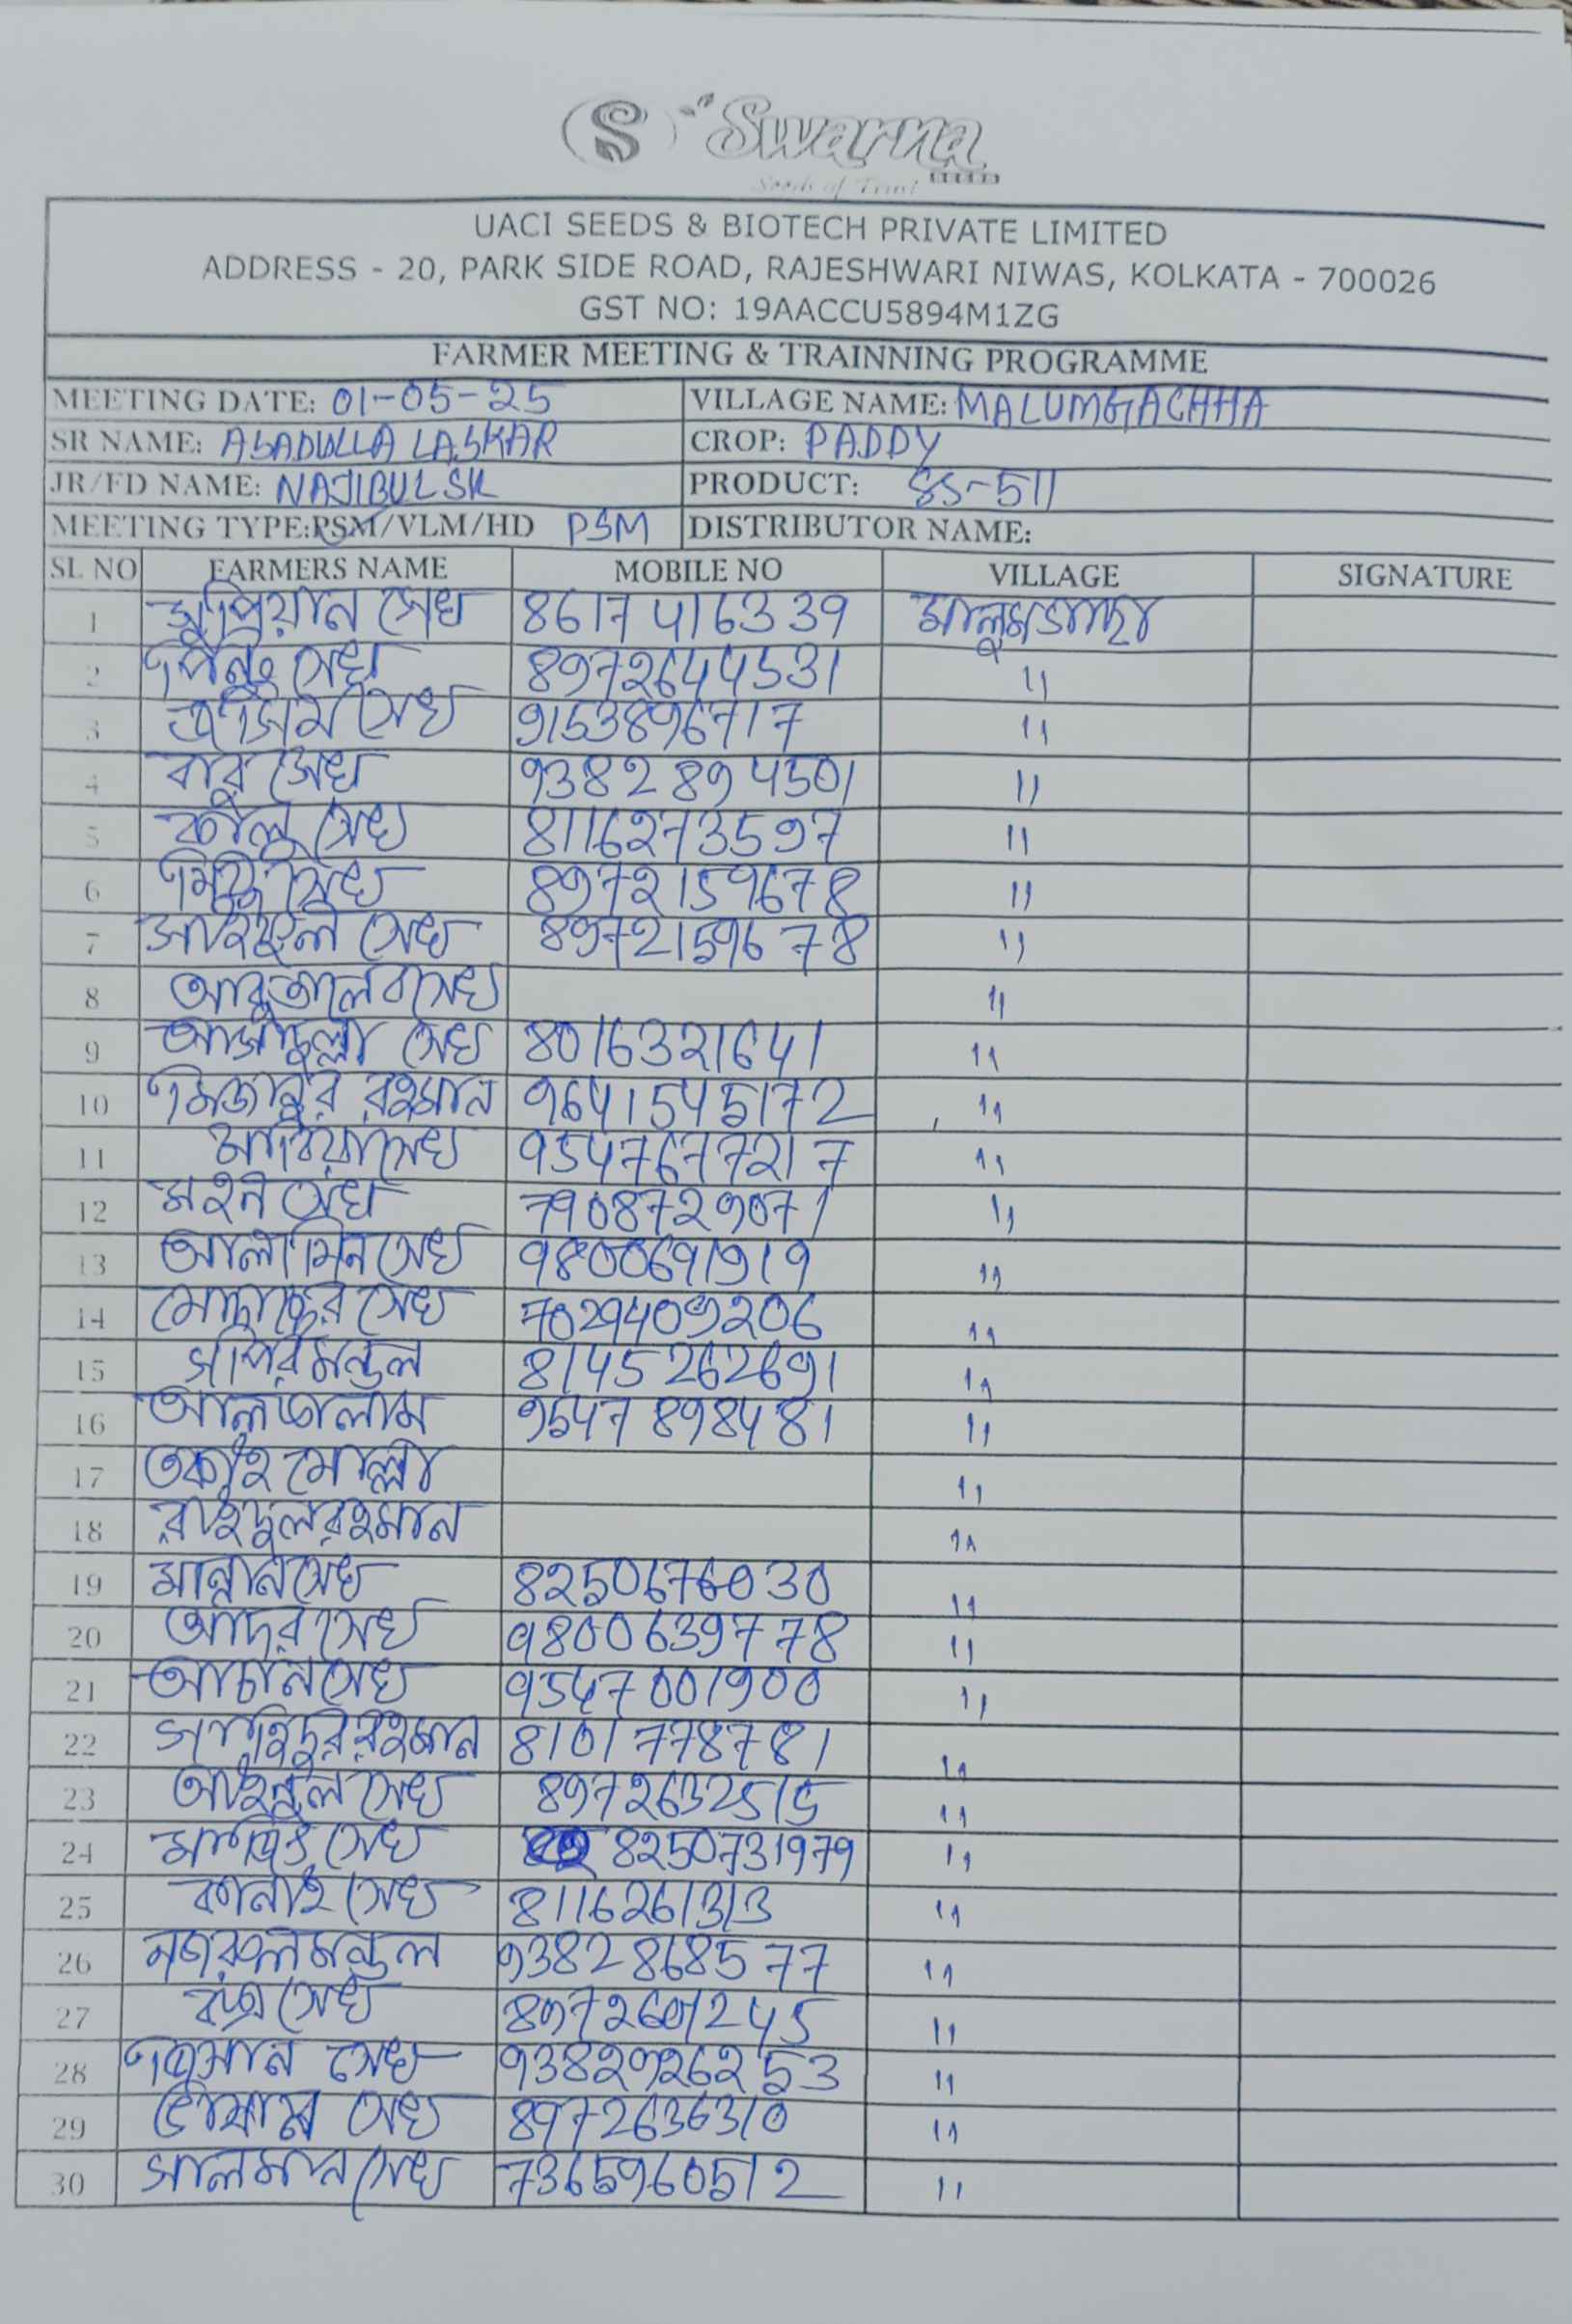 S Swarna
Seeds of Trust SEEDS
UACI SEEDS & BIOTECH PRIVATE LIMITED
ADDRESS - 20, PARK SIDE ROAD, RAJESHWARI NIWAS, KOLKATA - 700026
GST NO: 19AACCU5894M1ZG
FARMER MEETING & TRAINNING PROGRAMME
MEETING DATE: 01-05-25 VILLAGE NAME: MALUMGACHHA
SR NAME: ASADULLA LASKAR CROP: PADDY
JR/FD NAME: NAJIBUL SK PRODUCT: SS-511
MEETING TYPE:PSM/VLM/HD PSM DISTRIBUTOR NAME:
SL NO FARMERS NAME MOBILE NO VILLAGE SIGNATURE
1 সুপিয়ান সেখ 8617416339 মালুমগাছা
2 সেখ 8972644531 11
3 সেখ 9153896717 11
4 বাবু সেখ 9382894501 11
5 কালু সেখ 8116273597 11
6 সেখ 8972159678 11
7 সাইফুল সেখ 8972159678 11
8 আবুতালেব সেখ 11
9 আসাদুল্লা সেখ 8016321641 11
10 মিজানুর রহমান 9641545172 11
11 সেখ 9547677217 11
12 সেখ 7908729071 11
13 আলামিন সেখ 9800691919 11
14 সেখ 7029409206 11
15 মন্ডল 8145262691 11
16 9547898481 11
17 মোল্লা 11
18 রাইদুল রহমান 11
19 মান্নান সেখ 8250676030 11
20 আদর সেখ 9800639778 11
21 সেখ 9547001900 11
22 সাহিদুর রহমান 8101778781 11
23 আইনুল সেখ 8972632515 11
24 সেখ 8250731979 11
25 কানাই সেখ 8116261313 11
26 নজরুল মন্ডল 9382868577 11
27 সেখ 8972601245 11
28 সেখ 9382926253 11
29 সেখ 8972636310 11
30 সালমান সেখ 7365960512 11